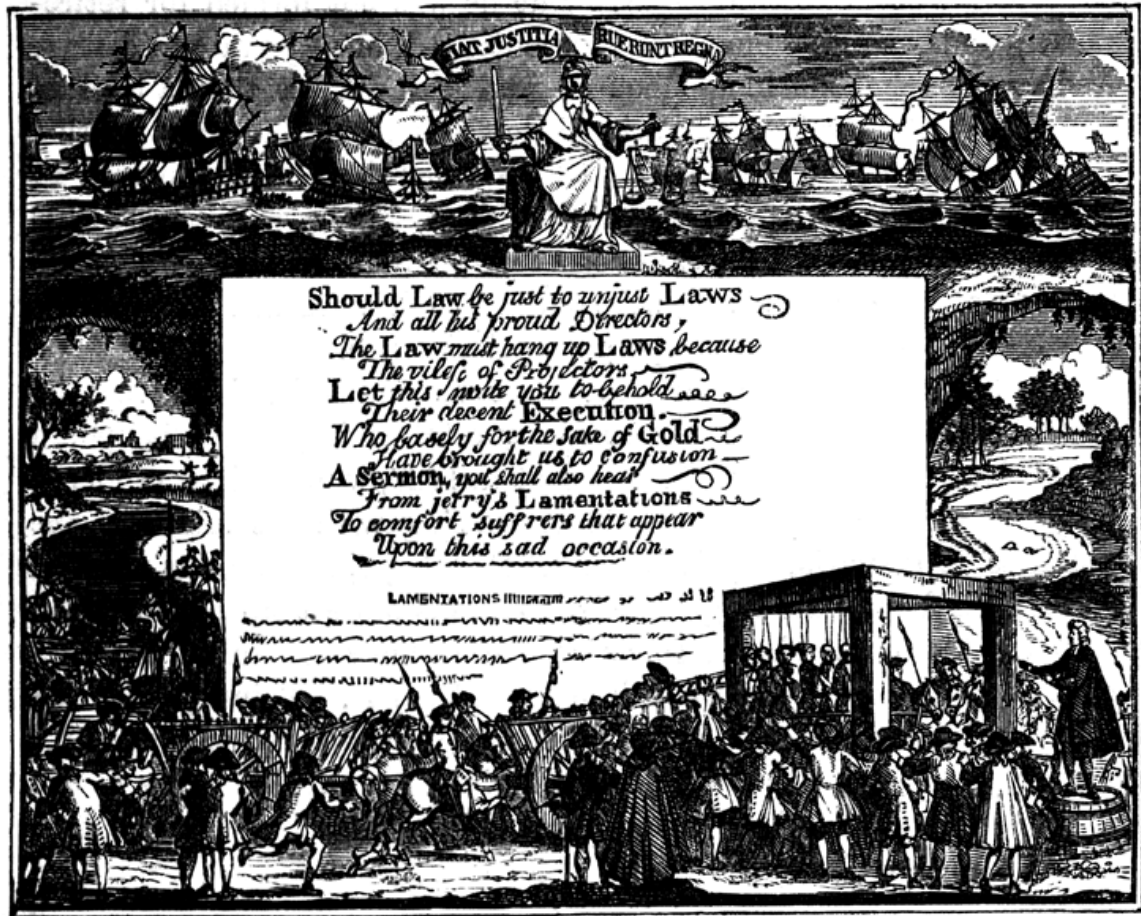 FIAT JUSTITIA RUERUNT REGNA
Should Law be just to unjust Laws
And all his proud Directors,
The Law must hang up Laws because
The vilest of Projectors
Let this invite you to behold
Their decent Execution.
Who basely for the sake of Gold
Have brought us to confusion
A Sermon, you shall also hear
From jerry's Lamentations
To comfort suff'rers that appear
Upon this sad occasion.
LAMENTATIONS